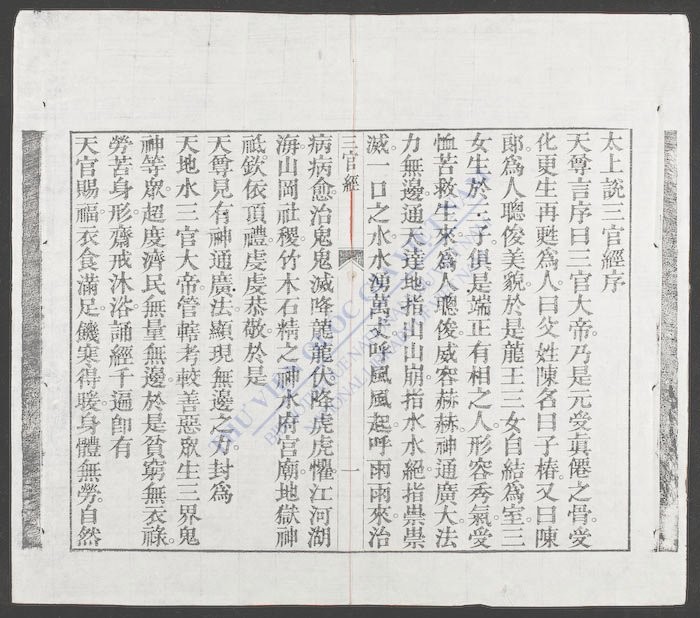 太上說三官經序
天尊言序曰三官大帝乃是元受眞僊之骨受
化更生再甦爲人曰父姓陳名曰子椿又曰陳
郎爲人聰俊美貌於是龍王三女自結爲室三
女生於三子俱是端正有相之人形容秀氣愛
恤苦救生來爲人聰俊威容赫赫神通廣大法
力無邊通天達地指山山崩指水水絕指祟祟
滅一口之水水湧萬丈呼風風起呼雨雨來治
三官經
一
病病愈治鬼鬼滅降龍龍伏降虎虎懼江河湖
海山岡社稷竹木石精之神水府宮廟地獄神
祇欽依頂禮虔虔恭敬於是
天尊見有神通廣法顯現無邊之力封爲
天地水三官大帝管轄考較善惡眾生三界鬼
神等眾超度濟民無量無邊於是貧窮無衣祿
勞苦身形齋戒沐浴誦經千遍卽有
天官賜福衣食滿足饑寒得暖身體無勞自然
THƯ VIỆN QUỐC GIA VIỆT NAM